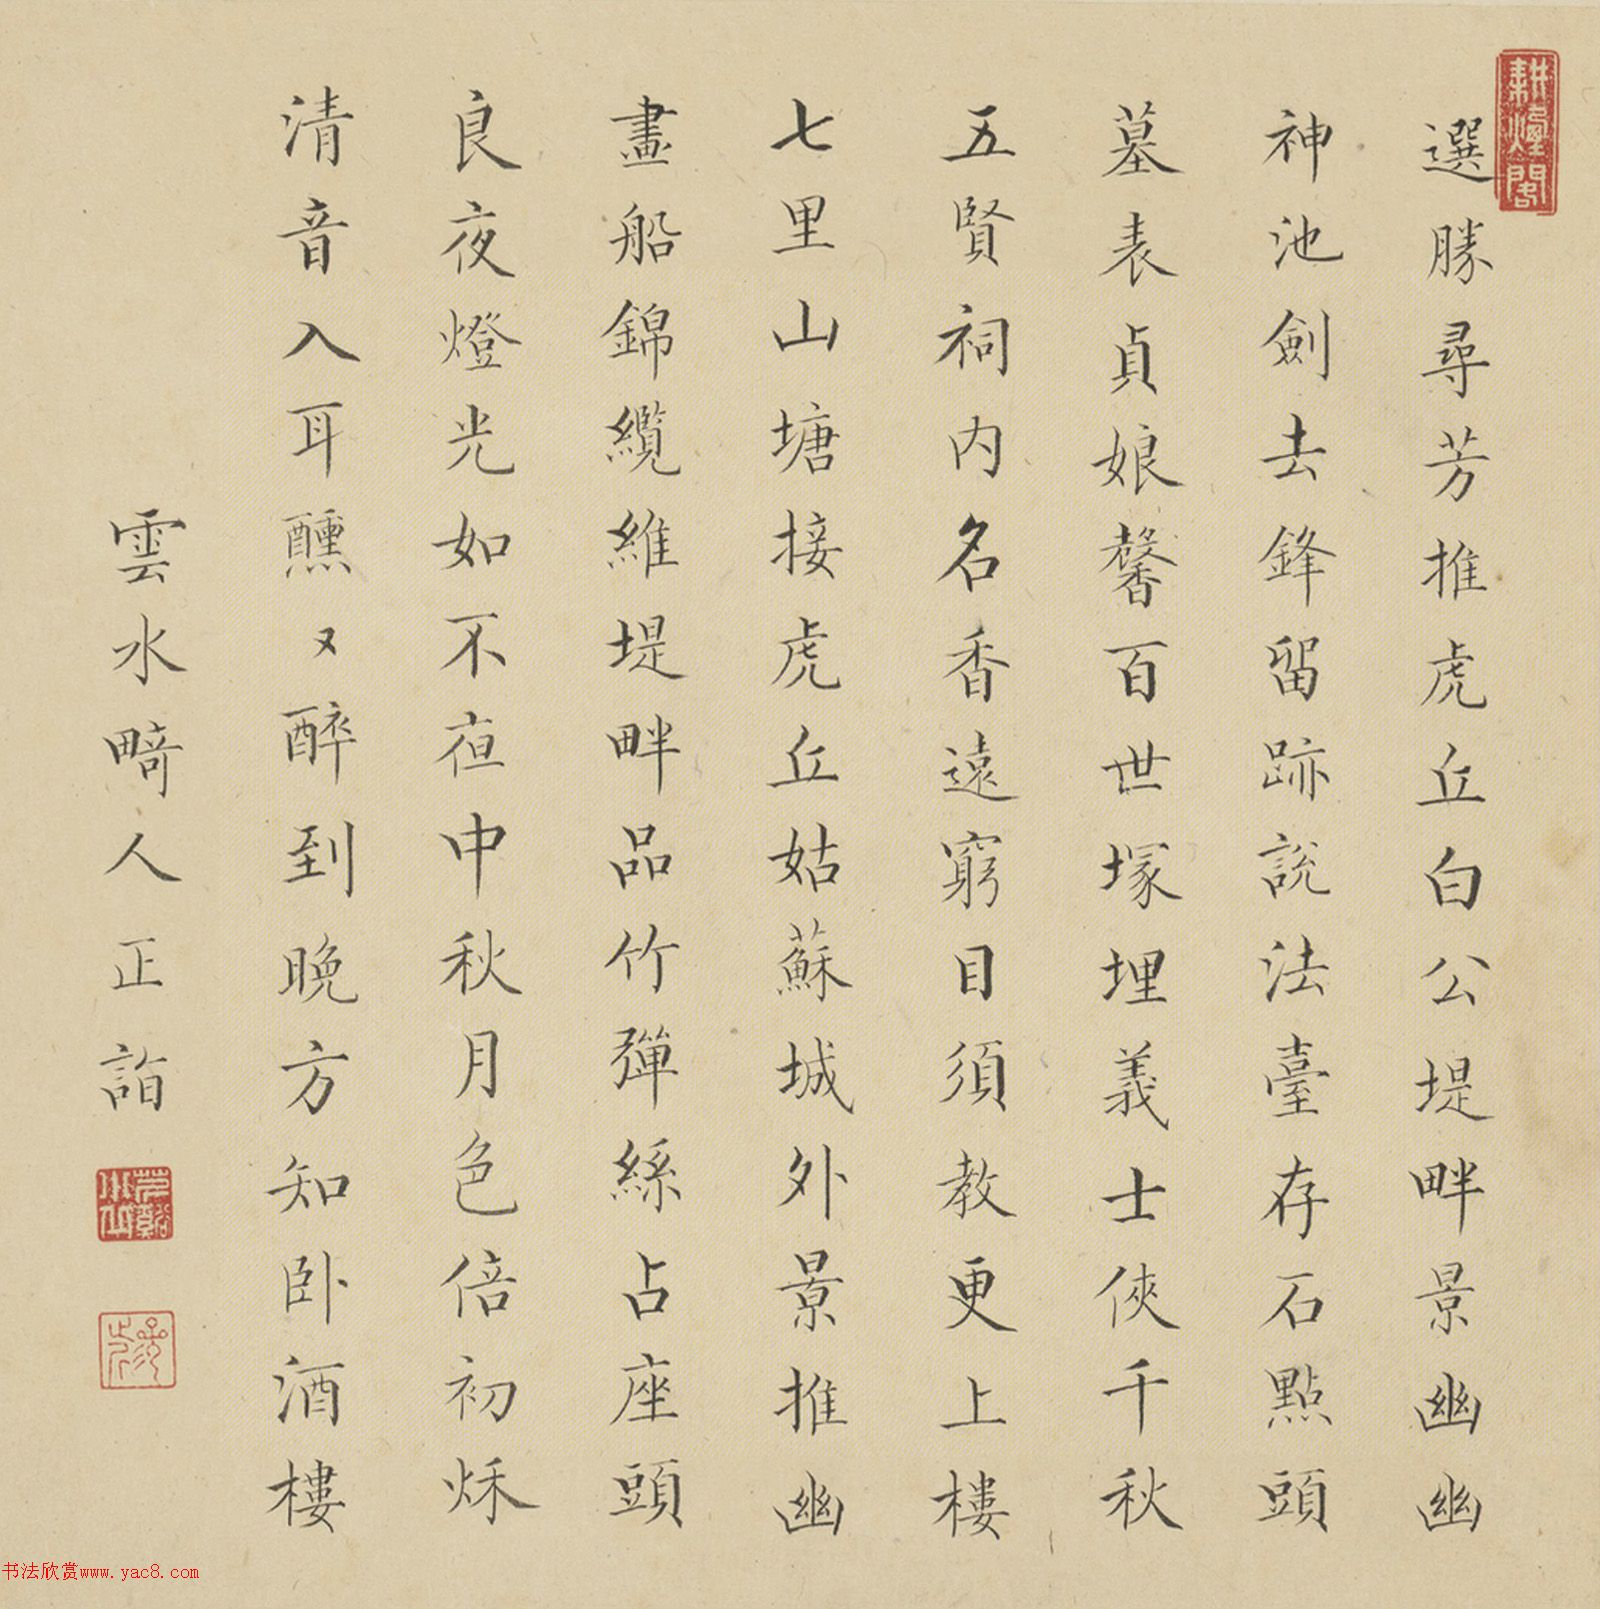 選勝尋芳推虎丘白公堤畔景幽幽
神池劍去鋒留跡說法臺存石點頭
墓表貞娘馨百世塚埋義士俠千秋
五賢祠内名香遠窮目須教更上樓
七里山塘接虎丘姑蘇城外景推幽
畫船錦纜維堤畔品竹彈絲占座頭
良夜燈光如不亱中秋月色倍初秌
清音入耳醺〻醉到晚方知卧酒樓
雲水畸人正詣
书法欣赏www.yac8.com